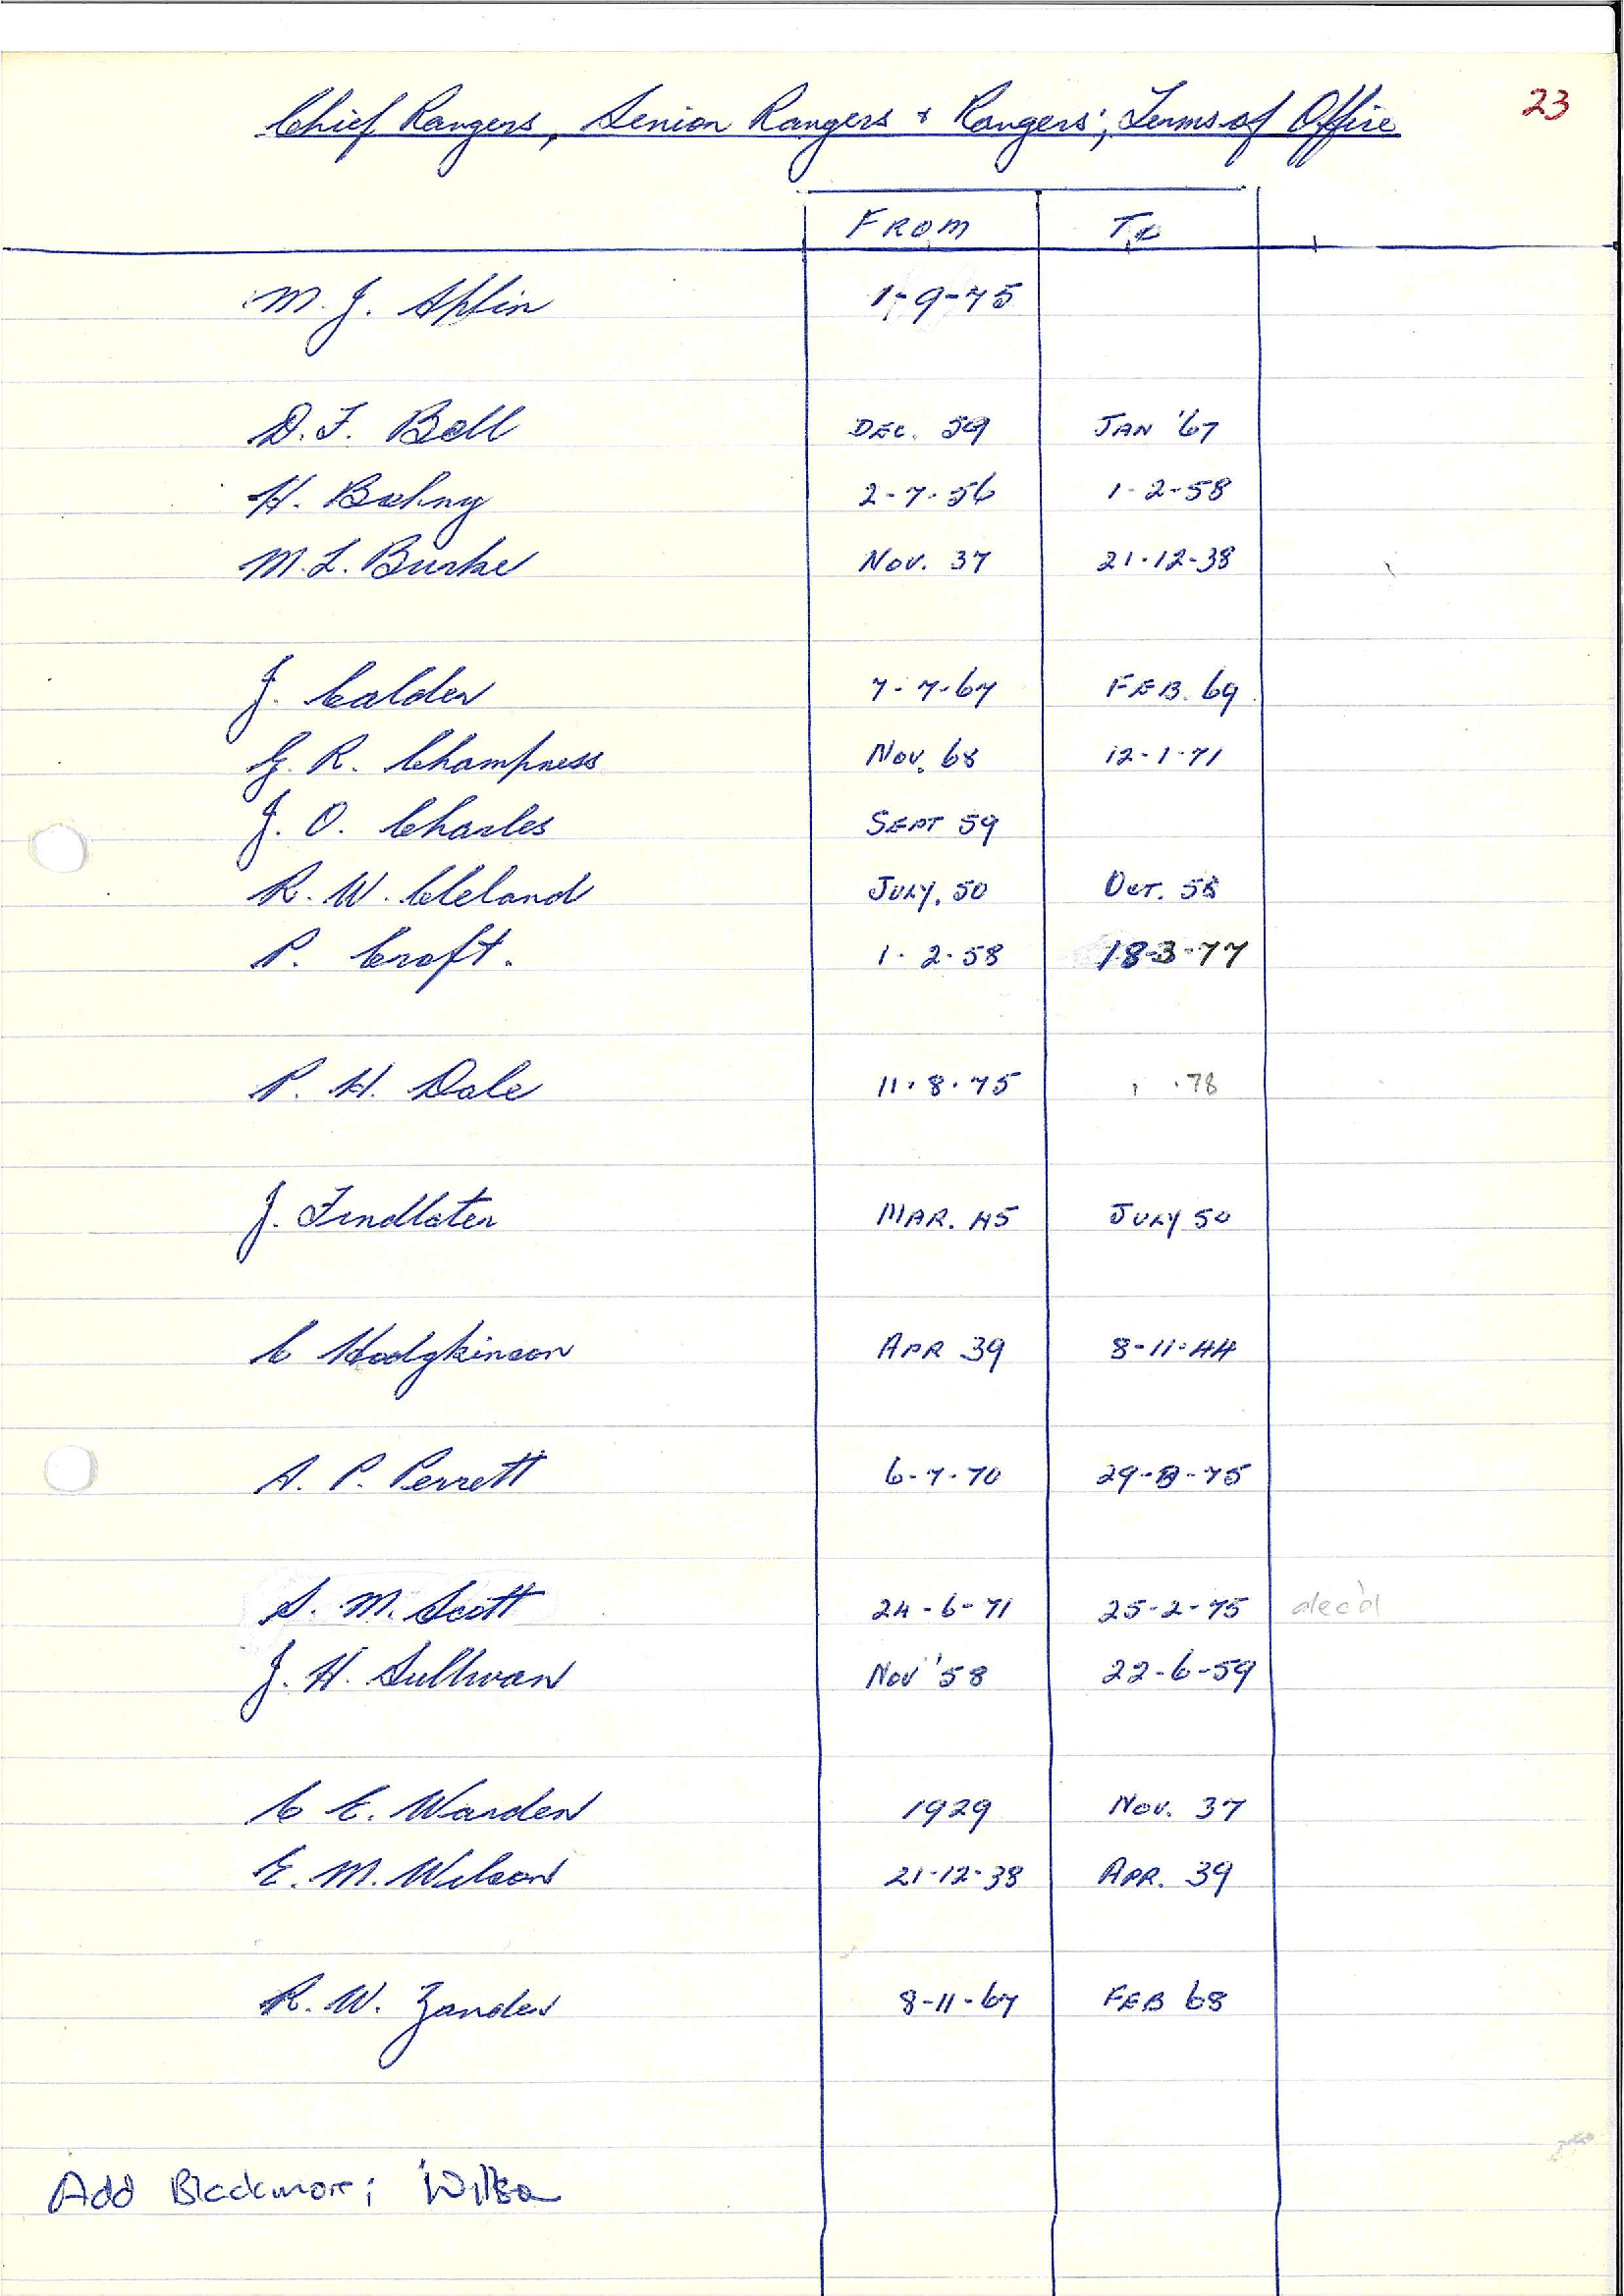 23
Chief Rangers, Senior Rangers + Rangers'; Terms of Office
FROM TO
M. J. Aplin 1-9-75
D. F. Bell DEC. 59 JAN '67
H. Bohny 2-7-56 1-2-58
M. L. Burke NOV. 37 21-12-38
J. Calder 7-7-67 FEB. 69
G. R. Champness NOV. 68 12-1-71
J. O. Charles SEPT 59
R. W. Cleland JULY. 50 OCT. 58
P. Croft. 1-2-58 18-3-77
P. H. Dale 11.8.75 78
J. Findlater MAR. 45 JULY 50
C Hodgkinson APR 39 8-11-44
A. P. Perrett 6-7-70 29-8-75
S. M. Scott 24-6-71 25-2-75 dec'd
J. H. Sullivan NOV '58 22-6-59
C E. Warden 1929 NOV. 37
E. M. Wilson 21-12-38 APR. 39
R. W. Zander 8-11-67 FEB 68
Add Blackmore;